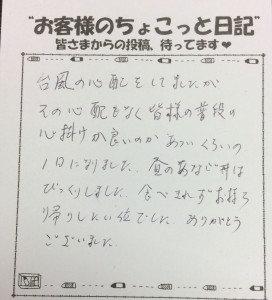 "お客様のちょこっと日記"
皆さまからの投稿、待ってます♥
台風の心配をしてましたが
その心配もなく皆様の普段の
心掛けが良いのか あついくらいの
1日になりました. 昼のあなご丼は
びっくりしました. 食べきれずお持ち
帰りしたい位でした. ありがとう
ございました.